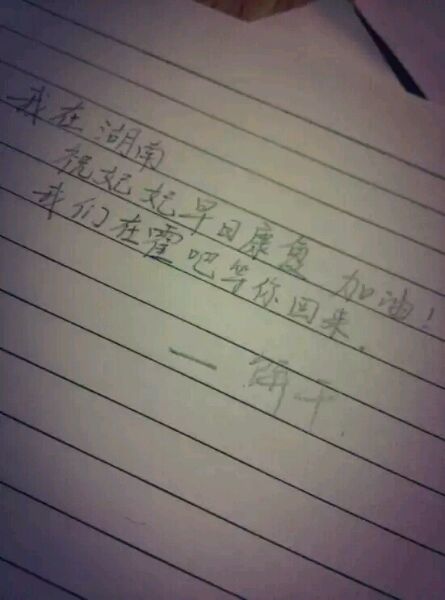 我在湖南
祝妃妃早日康复 加油!
我们在霍吧等你回来.
— 饼干.